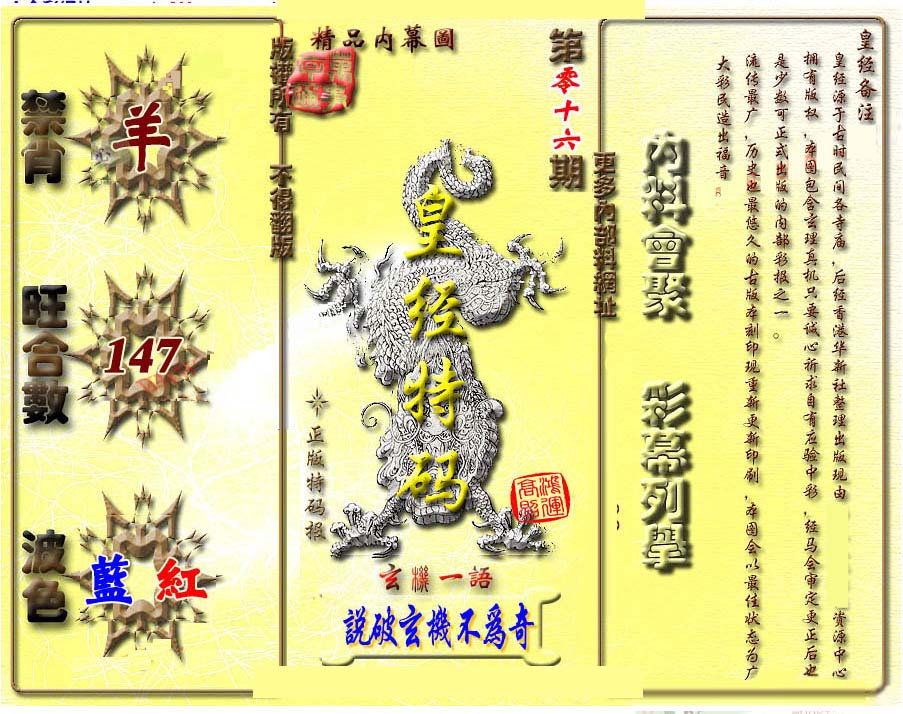 精品内幕圖
第零十六期
版權所有 不得翻版
更多內部料網址
禁肖
羊
旺合數
147
波色
藍 紅
皇经特码
正版特码报
鴻運高照
玄機一語
説破玄機不爲奇
內料會聚
彩幕列舉
皇经备注
皇经源于古时民间各寺庙,后经香港华新社整理出版现由 资源中心
拥有版权,本图包含玄理真机只要诚心祈求自有应验中彩,经马会审定更正后也
是少数可正式出版的内部彩报之一。
流传最广,历史也最悠久的古版本刻印现重新更新印刷,本图会以最佳状态为广
大彩民造出福音